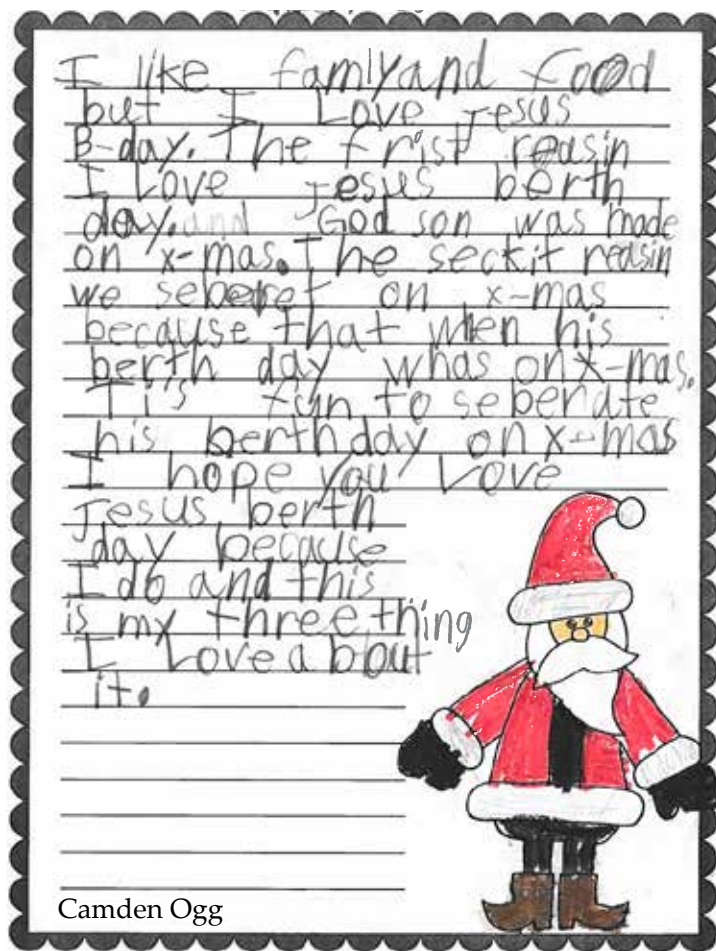 I like famlyand food
but I Love Jesus
B-day. The frist reasin
I Love Jesus berth
day. and God son was made
on x-mas. The seckit reasin
we seberet on x-mas
because that when his
berth day whas on x-mas.
Ti's fun to seberate
his berthday on x-mas
I hope you Love
Jesus berth
day because
I do and this
is my three thing
I Love about
it.
Camden Ogg